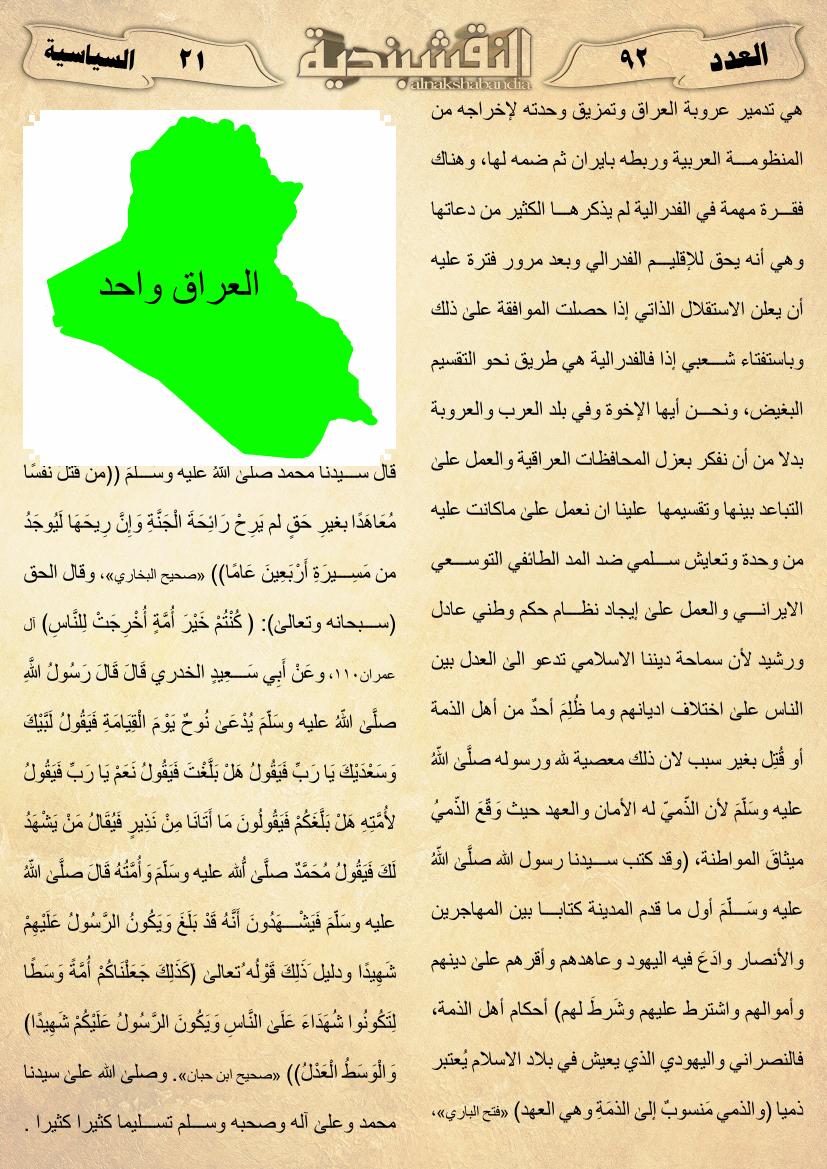 العدد
٩٢
النقشبندية
alnakshabandia
٢١
السياسية
هي تدمير عروبة العراق وتمزيق وحدته لإخراجه من
المنظومـــة العربية وربطه بايران ثم ضمه لها، وهناك
فقـــرة مهمة في الفدرالية لم يذكرهـــا الكثير من دعاتها
وهي أنه يحق للإقليـــم الفدرالي وبعد مرور فترة عليه
أن يعلن الاستقلال الذاتي إذا حصلت الموافقة علىٰ ذلك
وباستفتاء شـــعبي إذا فالفدرالية هي طريق نحو التقسيم
البغيض، ونحـــن أيها الإخوة وفي بلد العرب والعروبة
بدلا من أن نفكر بعزل المحافظات العراقية والعمل علىٰ
التباعد بينها وتقسيمها علينا ان نعمل علىٰ ماكانت عليه
من وحدة وتعايش سـلمي ضد المد الطائفي التوســـعي
الايرانـــي والعمل علىٰ إيجاد نظـــام حكم وطني عادل
ورشيد لأن سماحة ديننا الاسلامي تدعو الىٰ العدل بين
الناس علىٰ اختلاف اديانهم وما ظُلِمَ أحدٌ من أهل الذمة
أو قُتِل بغير سبب لان ذلك معصية لله ورسوله صلَّىٰ اللهُ
عليه وسَلّمَ لأن الذّميّ له الأمان والعهد حيث وَقّعَ الذّميُ
ميثاقَ المواطنة، (وقد كتب ســـيدنا رسول الله صلَّىٰ اللهُ
عليه وسَـــلّمَ أول ما قدم المدينة كتابـــا بين المهاجرين
والأنصار وادَعَ فيه اليهود وعاهدهم وأقرهم علىٰ دينهم
وأموالهم واشترط عليهم وشَرطَ لهم) أحكام أهل الذمة،
فالنصراني واليهودي الذي يعيش في بلاد الاسلام يُعتبر
ذميا (والذمي مَنسوبٌ إلىٰ الذمَةِ وهي العهد) «فتح الباري»،
العراق واحد
قال ســـيدنا محمد صلىٰ اللهُ عليه وســـلمَ ((من قتل نفسًا
مُعَاهَدًا بغيرِ حَقٍ لم يَرِحْ رَائِحَةَ الْجَنَّةِ وَإِنَّ رِيحَهَا لَيُوجَدُ
من مَسِـــيرَةِ أَرْبَعِينَ عَامًا)) «صحيح البخاري»، وقال الحق
(ســـبحانه وتعالىٰ): ( كُنْتُمْ خَيْرَ أُمَّةٍ أُخْرِجَتْ لِلنَّاسِ) آل
عمران١١٠، وعَنْ أَبِي سَـــعِيدٍ الخدري قَالَ قَالَ رَسُولُ اللَّهِ
صلَّىٰ اللهُ عليه وسَلّمَ يُدْعَىٰ نُوحٌ يَوْمَ الْقِيَامَةِ فَيَقُولُ لَبَّيْكَ
وَسَعْدَيْكَ يَا رَبِّ فَيَقُولُ هَلْ بَلَّغْتَ فَيَقُولُ نَعَمْ يَا رَبِّ فَيَقُولُ
لأُمَّتِهِ هَلْ بَلَّغَكُمْ فَيَقُولُونَ مَا أَتَانَا مِنْ نَذِيرٍ فَيُقَالُ مَنْ يَشْهَدُ
لَكَ فَيَقُولُ مُحَمَّدٌ صلَّىٰ اللهُ عليه وسَلّمَ وَأُمَّتُهُ قَالَ صلَّىٰ اللهُ
عليه وسَلّمَ فَيَشْـــهَدُونَ أَنَّهُ قَدْ بَلَغَ وَيَكُونُ الرَّسُولُ عَلَيْهِمْ
شَهِيدًا ودليل ذَلِكَ قَوْلُه تعالىٰ (كَذَلِكَ جَعَلْنَاكُمْ أُمَّةً وَسَطًا
لِتَكُونُوا شُهَدَاءَ عَلَىٰ النَّاسِ وَيَكُونَ الرَّسُولُ عَلَيْكُمْ شَهِيدًا)
وَالْوَسَطُ الْعَدْلُ)) «صحيح ابن حبان». وصلىٰ الله علىٰ سيدنا
محمد وعلىٰ آله وصحبه وســـلم تســـليما كثيرا كثيرا .